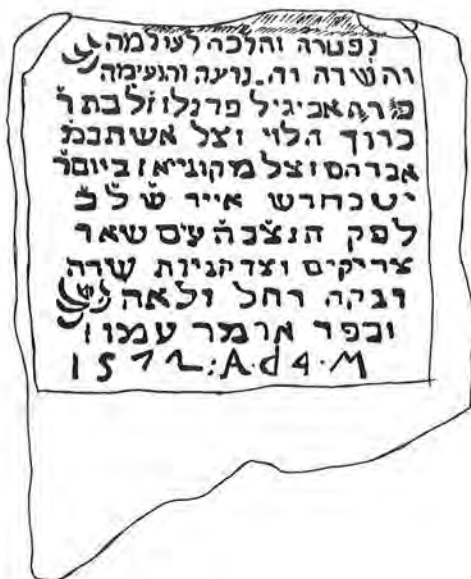 נפטרה והלכה לעולמה
והשרה והנעימה
מרת אביגיל זל בת ר
ברוך הלוי זצל אשת כמ
אברהם זצל ביום
יט בחדש אייר ש̈ל̈ב̈
לפק תנצבה עם שאר
צדיקים וצדקניות שרה
רבקה רחל ולאה
1572: A. d 4. M